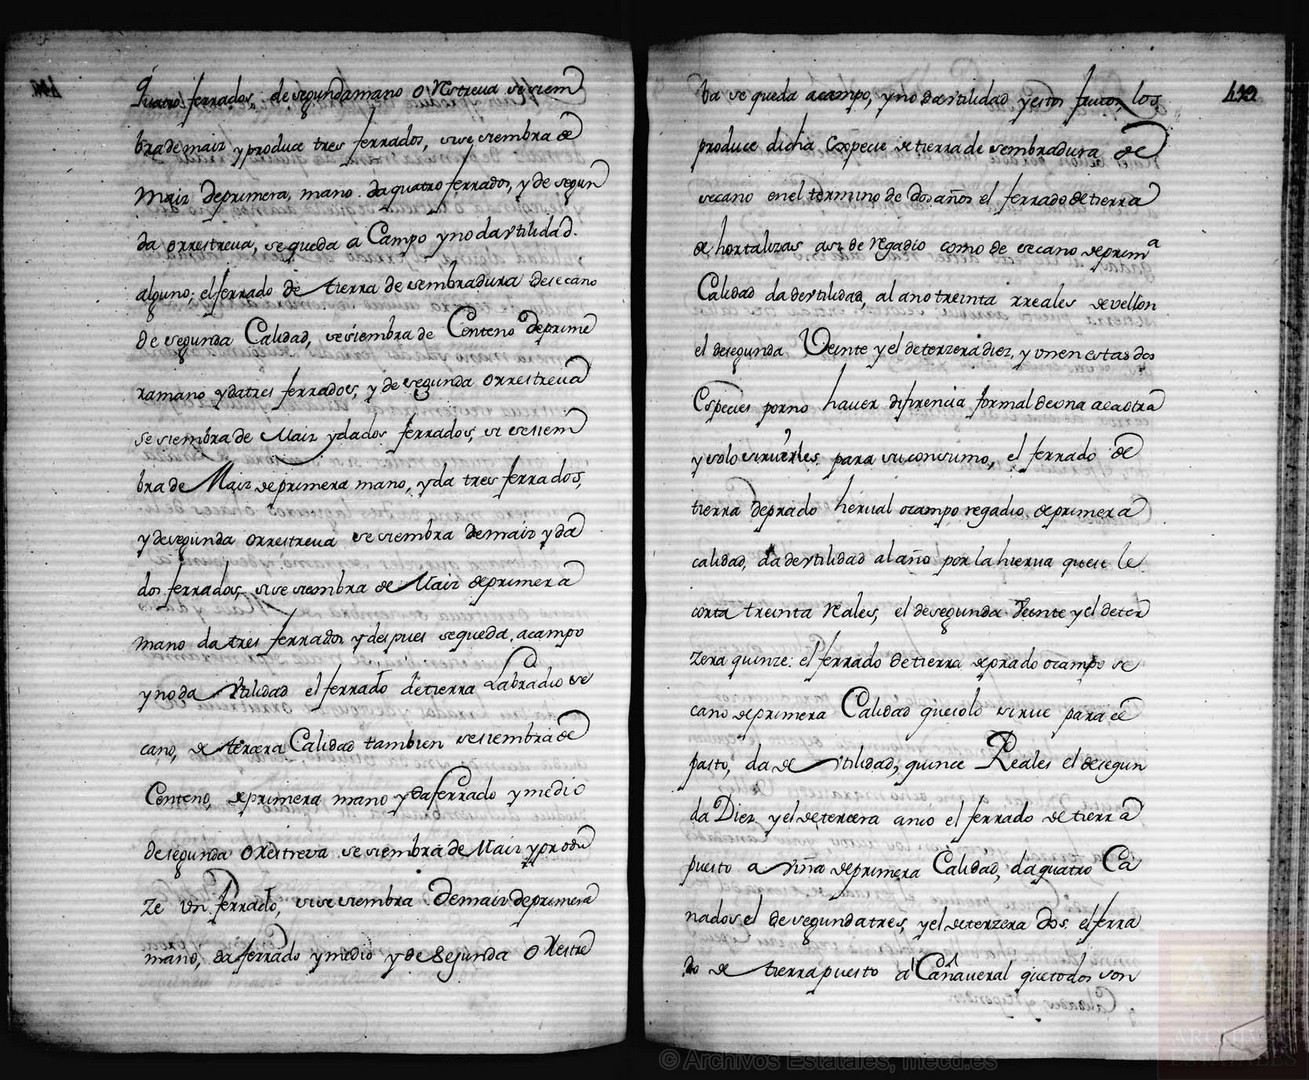 Quatro ferrados, de segunda mano o Restreua se siem
bra de maiz y produce tres ferrados, si se siembra de
Maiz de primera, mano. da quatro ferrados, y de segun
da orrestreua, se queda a Campo y no da vtilidad.
alguno; el ferrado de tierra de sembradura de secano
de segunda Calidad, se siembra de Centeno de prime
ra mano y da tres ferrados, y de segunda orrestreua
se siembra de Maiz y da dos ferrados, si se siem
bra de Maiz de primera mano, y da tres ferrados,
y de segunda orrestreua se siembra de maiz y da
dos ferrados, si se siembra de Maiz de primera
mano da tres ferrados y despues se queda, a campo
y no da Vtilidad el ferrado de tierra Labradio se
cano, de terzera Calidad tambien se siembra de
Centeno, de primera mano y da ferrado y medio
de segunda o Restreva se siembra de Maiz y produ
ze vn ferrado, si se siembra de maiz de primera
mano, da ferrado y medio y de segunda o Restre
419
ba se queda a campo, y no da vtilidad y estos frutos, los
produce dicha Especie de tierra de sembradura de
secano en el termino de dos años el ferrado de tierra
de hortalizas asi de regadio como de secano de prima
Calidad da de vtilidad, al ano treinta rreales de vellon
el de segunda Veinte y el de terzera diez, y vnen estas dos
Especies por no hauer difirencia formal de vna a la otra
y solo siruerles para su consumo, el ferrado de
tierra de prado herual o campo regadio de primera
calidad, da de vtilidad al año por la hierua que se le
corta treinta Reales, el de segunda Veinte y el deter
zera quinze: el ferrado de tierra de prado o campo se
cano de primera Calidad que solo sirue para el
pasto, da de vtilidad, quince Reales el de segun
da Diez, y el de tercera cinco el ferrado de tierra
puesto a viña de primera Calidad, da quatro Ca
nados, el de segunda tres, y el de terzera dos. el ferra
do de tierra puesto a Cañaueral que todos son
Calidades y Responden
© Archivos Estatales, mecd.es